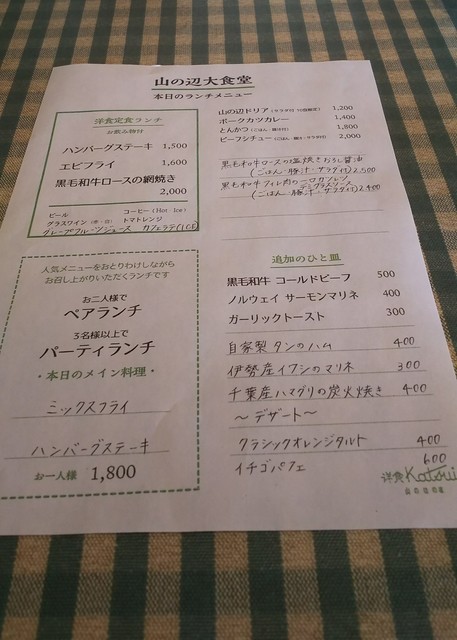 山の辺大食堂
本日のランチメニュー
洋食定食ランチ
お飲み物付
ハンバーグステーキ 1,500
エビフライ 1,600
黒毛和牛ロースの網焼き
2,000
ビール コーヒー(Hot Ice)
グラスワイン(赤・白) トマトレンジ
グレープフルーツジュース カフェラテ(ICE)
山の辺ドリア 1,200
ポークカツカレー 1,400
とんかつ 1,800
ビーフシチュー 2,000
黒毛和牛ロースの塩焼きおろし醤油
(ごはん・豚汁・サラダ付) 2,500
黒毛和牛フィレ肉の一口カツレツ
デミグラスソース
(ごはん・豚汁・サラダ付) 2,400
人気メニューをおとりわけしながら
お召し上がりいただくランチです
お二人様で
ペアランチ
3名様以上で
パーティランチ
・本日のメイン料理・
ミックスフライ
ハンバーグステーキ
お一人様 1,800
追加のひと皿
黒毛和牛 コールドビーフ 500
ノルウェイ サーモンマリネ 400
ガーリックトースト 300
自家製タンのハム 400
伊勢産イワシのマリネ 300
千葉産ハマグリの炭火焼き 400
～デザート～
クラシックオレンジタルト 400
イチゴパフェ 600
洋食 Katsui